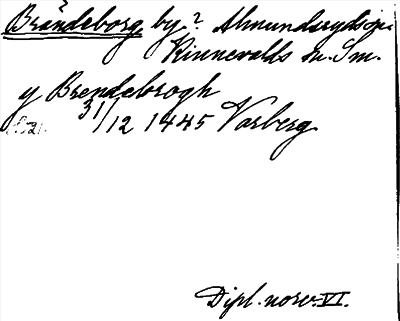 Brändeborg by? Almundsrydssn.
Kinnevalds h. Sm.
y Brendebrogh
31/12 1445 Varberg
Dipl. norv. VI.